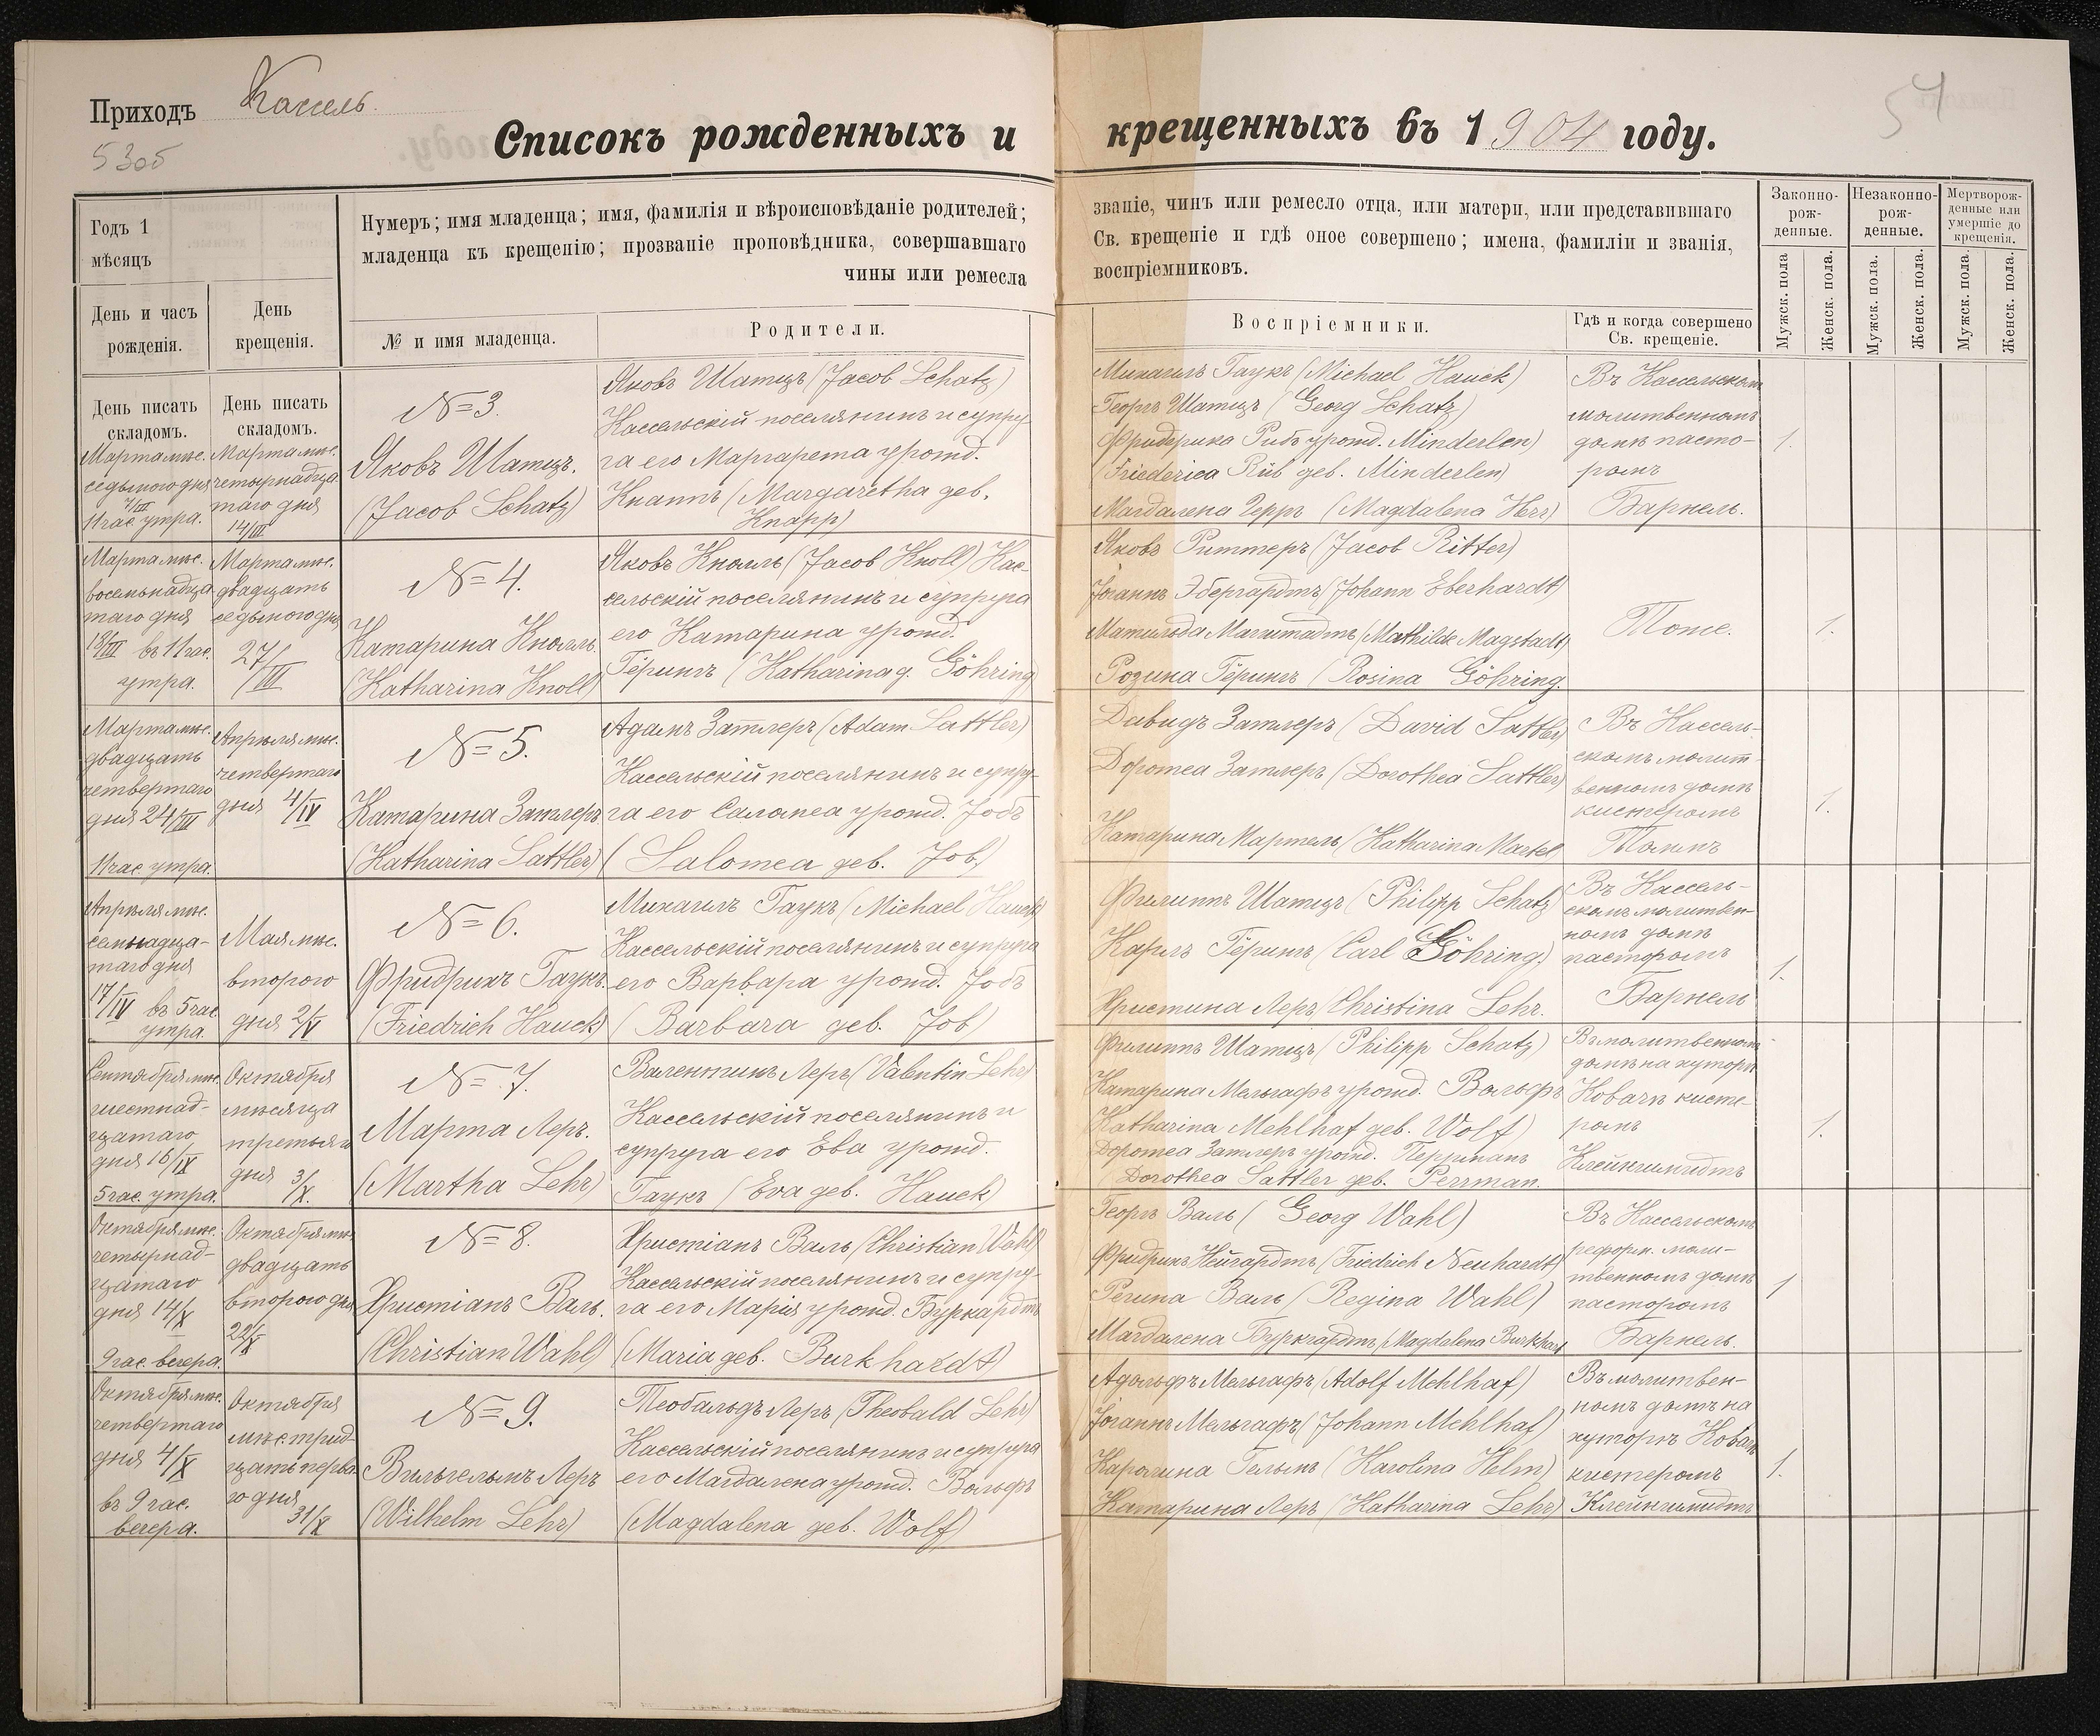 Приходъ Кассель.
53об
54
Списокъ рожденныхъ и крещенныхъ въ 1904 году.
Годъ 1
мѣсяцъ
День и часъ
рожденія.
День
крещенія.
Нумеръ; имя младенца; имя, фамилія и вѣроисповѣданіе родителей;
младенца къ крещенію; прозваніе проповѣдника, совершавшаго
чины или ремесла
№ и имя младенца.
Родители.
званіе, чинъ или ремесло отца, или матери, или представившаго
Св. крещеніе и гдѣ оное совершено; имена, фамиліи и званія,
воспріемниковъ.
Воспріемники.
Гдѣ и когда совершено
Св. крещеніе.
Законно-
рож-
денные.
Незаконно-
рож-
денные.
Мертворож-
денные или
умершіе до
крещенія.
Мужск. пола
Женск. пола.
Мужск. пола.
Женск. пола.
Мужск. пола
Женск. пола.
День писать
складомъ.
День писать
складомъ.
Марта мѣс.
седьмого дня
7/III
11 час. утра.
Марта мѣс.
четырнадца-
таго дня
14/III
№ 3.
Яковъ Шатцъ.
(Jacob Schatz)
Яковъ Шатцъ (Jacob Schatz)
Кассельскій поселянинъ и супру-
га его Маргарета урожд.
Кнаппъ (Margaretha geb.
Knapp)
Михаилъ Гаукъ (Michael Hauck)
Георгъ Шатцъ (Georg Schatz)
Фридерика Рибъ урожд. Minderlen)
(Friederica Rüb geb. Minderlen)
Магдалена Герръ (Magdalena Herr)
Въ Кассельскомъ
молитвенномъ
домѣ пасто-
ромъ
Барнель.
1.
Марта мѣс.
восемьнадца-
таго дня
18/III въ 11 час.
утра.
Марта мѣс.
двадцать
седьмого дня
27/III
№ 4.
Катарина Кнолль.
(Katharina Knoll)
Яковъ Кнолль (Jacob Knoll) Кас-
сельскій поселянинъ и супруга
его Катарина урожд.
Герингъ (Katharina g. Göhring)
Яковъ Риттеръ (Jacob Ritter)
Іоганнъ Эбергардтъ (Johann Eberhardt)
Матильда Магштадтъ (Mathilde Magstadt)
Розина Герингъ (Rosina Göhring.
Тоже.
1.
Марта мѣс.
двадцать
четвертаго
дня 24/III
11 час. утра.
Апрѣля мѣс.
четвертаго
дня 4/IV
№ 5.
Катарина Затлеръ.
(Katharina Sattler)
Адамъ Затлеръ (Adam Sattler)
Кассельскій поселянинъ и супру-
га его Саломеа урожд. Јобъ
(Salomea geb. Job.)
Давидъ Затлеръ (David Sattler)
Доротеа Затлеръ (Dorothea Sattler)
Катарина Мартель (Katharina Martel
Въ Кассель-
скомъ молит-
венномъ домѣ
кистеромъ
1.
Апрѣля мѣс.
семьнадца-
таго дня
17/IV въ 5 час.
утра.
Мая мѣс.
второго
дня 2/V
№ 6.
Фридрихъ Гаукъ.
(Friedrich Hauck)
Михаилъ Гаукъ (Michael Hauck)
Кассельскій поселянинъ и супруга
его Варвара урожд. Јобъ
(Barbara geb. Job)
Филиппъ Шатцъ (Philipp Schatz)
Карлъ Герингъ (Carl Göhring)
Христина Леръ (Christina Lehr.
Въ Кассель-
скомъ молитвен-
номъ домѣ
пасторомъ
Барнель
1.
Сентября мѣс.
шестнад-
цатаго
дня 16/IX
5 час. утра.
Октября
мѣсяца
третьяго
дня 3/X.
№ 7.
Марта Леръ.
(Martha Lehr)
Валентинъ Леръ (Valentin Lehr)
Кассельскій поселянинъ и
супруга его Ева урожд.
Гаукъ (Eva geb. Hauck)
Филиппъ Шатцъ (Philipp Schatz)
Катарина Мельгафъ урожд. Вольфъ
Katharina Mehlhaf geb. Wolf)
Доротеа Затлеръ урожд. Перрманъ
(Dorothea Sattler geb. Perrman.
Въ молитвенномъ
домѣ на хуторѣ
Ковачъ кисте-
ромъ
Клейншмидтъ
1.
Октября мѣс.
четырнад-
цатаго
дня 14/X
9 час. вечера.
Октября мѣс.
двадцать
второго дня
22/X
№ 8.
Христіанъ Валь.
(Christian Wahl)
Христіанъ Валь (Christian Wahl)
Кассельскій поселянинъ и супру-
га его Марія урожд. Буркардтъ
(Maria geb. Burkhardt)
Георгъ Валь (Georg Wahl)
Фридрихъ Нейгардтъ (Friedrich Neuhardt)
Регина Валь (Regina Wahl)
Магдалена Буркгардтъ (Magdalena Burkhart
Въ Кассельскомъ
реформ. моли-
твенномъ домѣ
пасторомъ
Барнель.
1
Октября мѣс.
четвертаго
дня 4/X
въ 9 час.
вечера.
Октября
мѣс. трид-
цать перва-
го дня
31/X
№ 9.
Вильгельмъ Леръ
(Wilhelm Lehr)
Теобальдъ Леръ (Theobald Lehr)
Кассельскій поселянинъ и супруга
его Магдалена урожд. Вольфъ
(Magdalena geb. Wolf)
Адольфъ Мельгафъ (Adolf Mehlhaf)
Іоганнъ Мельгафъ (Johann Mehlhaf)
Каролина Гельмъ (Karolina Helm)
Катарина Леръ (Katharina Lehr)
Въ молитвен-
номъ домѣ на
хуторѣ Ковачъ
кистеромъ
Клейншмидтъ
1.